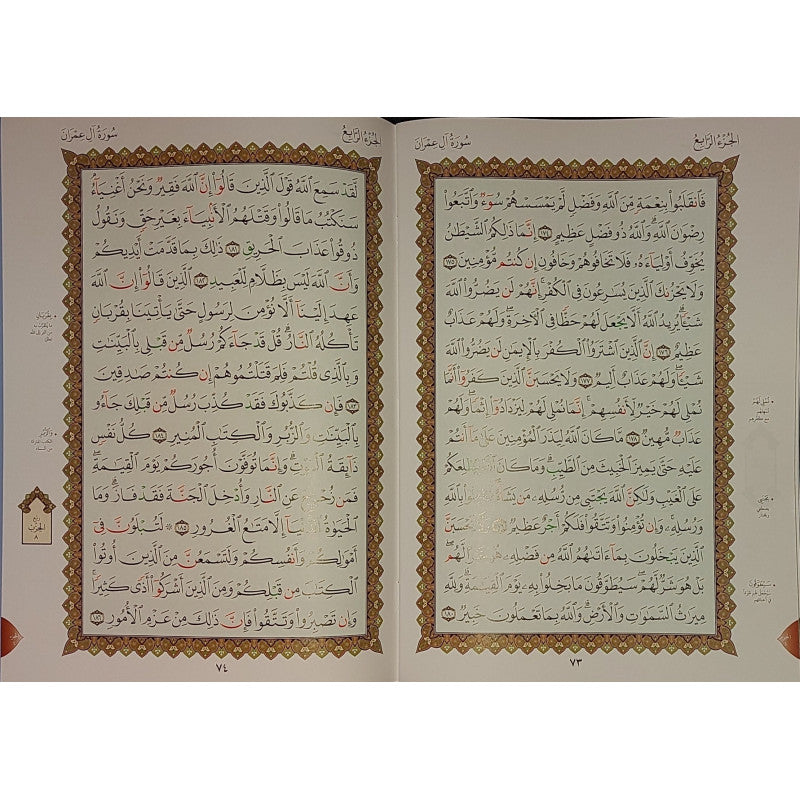 الجُزْءُ الرَّابِعُ
سُورَةُ آلِ عِمْرَانَ
فَٱنقَلَبُوا۟ بِنِعْمَةٍ مِّنَ ٱللَّهِ وَفَضْلٍ لَّمْ يَمْسَسْهُمْ سُوٓءٌ وَٱتَّبَعُوا۟
رِضْوَٰنَ ٱللَّهِ ۗ وَٱللَّهُ ذُو فَضْلٍ عَظِيمٍ ١٧٤ إِنَّمَا ذَٰلِكُمُ ٱلشَّيْطَٰنُ
يُخَوِّفُ أَوْلِيَآءَهُۥ فَلَا تَخَافُوهُمْ وَخَافُونِ إِن كُنتُم مُّؤْمِنِينَ ١٧٥
وَلَا يَحْزُنكَ ٱلَّذِينَ يُسَٰرِعُونَ فِى ٱلْكُفْرِ ۚ إِنَّهُمْ لَن يَضُرُّوا۟ ٱللَّهَ
شَيْـًٔا ۗ يُرِيدُ ٱللَّهُ أَلَّا يَجْعَلَ لَهُمْ حَظًّا فِى ٱلْـَٔاخِرَةِ ۖ وَلَهُمْ عَذَابٌ
عَظِيمٌ ١٧٦ إِنَّ ٱلَّذِينَ ٱشْتَرَوُا۟ ٱلْكُفْرَ بِٱلْإِيمَٰنِ لَن يَضُرُّوا۟ ٱللَّهَ
شَيْـًٔا وَلَهُمْ عَذَابٌ أَلِيمٌ ١٧٧ وَلَا يَحْسَبَنَّ ٱلَّذِينَ كَفَرُوٓا۟ أَنَّمَا
نُمْلِى لَهُمْ خَيْرٌ لِّأَنفُسِهِمْ ۚ إِنَّمَا نُمْلِى لَهُمْ لِيَزْدَادُوٓا۟ إِثْمًا ۚ وَلَهُمْ
عَذَابٌ مُّهِينٌ ١٧٨ مَّا كَانَ ٱللَّهُ لِيَذَرَ ٱلْمُؤْمِنِينَ عَلَىٰ مَآ أَنتُمْ
عَلَيْهِ حَتَّىٰ يَمِيزَ ٱلْخَبِيثَ مِنَ ٱلطَّيِّبِ ۗ وَمَا كَانَ ٱللَّهُ لِيُطْلِعَكُمْ
عَلَى ٱلْغَيْبِ وَلَٰكِنَّ ٱللَّهَ يَجْتَبِى مِن رُّسُلِهِۦ مَن يَشَآءُ ۖ فَـَٔامِنُوا۟ بِٱللَّهِ
وَرُسُلِهِۦ ۚ وَإِن تُؤْمِنُوا۟ وَتَتَّقُوا۟ فَلَكُمْ أَجْرٌ عَظِيمٌ ١٧٩ وَلَا يَحْسَبَنَّ
ٱلَّذِينَ يَبْخَلُونَ بِمَآ ءَاتَىٰهُمُ ٱللَّهُ مِن فَضْلِهِۦ هُوَ خَيْرًا لَّهُم ۖ
بَلْ هُوَ شَرٌّ لَّهُمْ ۖ سَيُطَوَّقُونَ مَا بَخِلُوا۟ بِهِۦ يَوْمَ ٱلْقِيَٰمَةِ ۗ وَلِلَّهِ
مِيرَٰثُ ٱلسَّمَٰوَٰتِ وَٱلْأَرْضِ ۗ وَٱللَّهُ بِمَا تَعْمَلُونَ خَبِيرٌ ١٨٠
نُمْلِي لَهُمْ
نُمْهِلُهُم
مع كفرهم
يَجْتَبِي
يصطفي
ويختار
سَيُطَوَّقُونَ
٧٣
الجُزْءُ الرَّابِعُ
سُورَةُ آلِ عِمْرَانَ
لَّقَدْ سَمِعَ ٱللَّهُ قَوْلَ ٱلَّذِينَ قَالُوٓا۟ إِنَّ ٱللَّهَ فَقِيرٌ وَنَحْنُ أَغْنِيَآءُ ۘ
سَنَكْتُبُ مَا قَالُوا۟ وَقَتْلَهُمُ ٱلْأَنۢبِيَآءَ بِغَيْرِ حَقٍّ وَنَقُولُ
ذُوقُوا۟ عَذَابَ ٱلْحَرِيقِ ١٨١ ذَٰلِكَ بِمَا قَدَّمَتْ أَيْدِيكُمْ
وَأَنَّ ٱللَّهَ لَيْسَ بِظَلَّامٍ لِّلْعَبِيدِ ١٨٢ ٱلَّذِينَ قَالُوٓا۟ إِنَّ ٱللَّهَ
عَهِدَ إِلَيْنَآ أَلَّا نُؤْمِنَ لِرَسُولٍ حَتَّىٰ يَأْتِيَنَا بِقُرْبَانٍ
تَأْكُلُهُ ٱلنَّارُ ۗ قُلْ قَدْ جَآءَكُمْ رُسُلٌ مِّن قَبْلِى بِٱلْبَيِّنَٰتِ
وَبِٱلَّذِى قُلْتُمْ فَلِمَ قَتَلْتُمُوهُمْ إِن كُنتُمْ صَٰدِقِينَ
١٨٣ فَإِن كَذَّبُوكَ فَقَدْ كُذِّبَ رُسُلٌ مِّن قَبْلِكَ جَآءُو
بِٱلْبَيِّنَٰتِ وَٱلزُّبُرِ وَٱلْكِتَٰبِ ٱلْمُنِيرِ ١٨٤ كُلُّ نَفْسٍ
ذَآئِقَةُ ٱلْمَوْتِ ۗ وَإِنَّمَا تُوَفَّوْنَ أُجُورَكُمْ يَوْمَ ٱلْقِيَٰمَةِ ۖ
فَمَن زُحْزِحَ عَنِ ٱلنَّارِ وَأُدْخِلَ ٱلْجَنَّةَ فَقَدْ فَازَ ۗ وَمَا
ٱلْحَيَوٰةُ ٱلدُّنْيَآ إِلَّا مَتَٰعُ ٱلْغُرُورِ ١٨٥ ۞ لَتُبْلَوُنَّ فِىٓ
أَمْوَٰلِكُمْ وَأَنفُسِكُمْ وَلَتَسْمَعُنَّ مِنَ ٱلَّذِينَ أُوتُوا۟
ٱلْكِتَٰبَ مِن قَبْلِكُمْ وَمِنَ ٱلَّذِينَ أَشْرَكُوٓا۟ أَذًى كَثِيرًا ۚ
وَإِن تَصْبِرُوا۟ وَتَتَّقُوا۟ فَإِنَّ ذَٰلِكَ مِنْ عَزْمِ ٱلْأُمُورِ ١٨٦
بِقُرْبَانٍ
وَالزُّبُرِ
ربع
الحزب
٨
٧٤